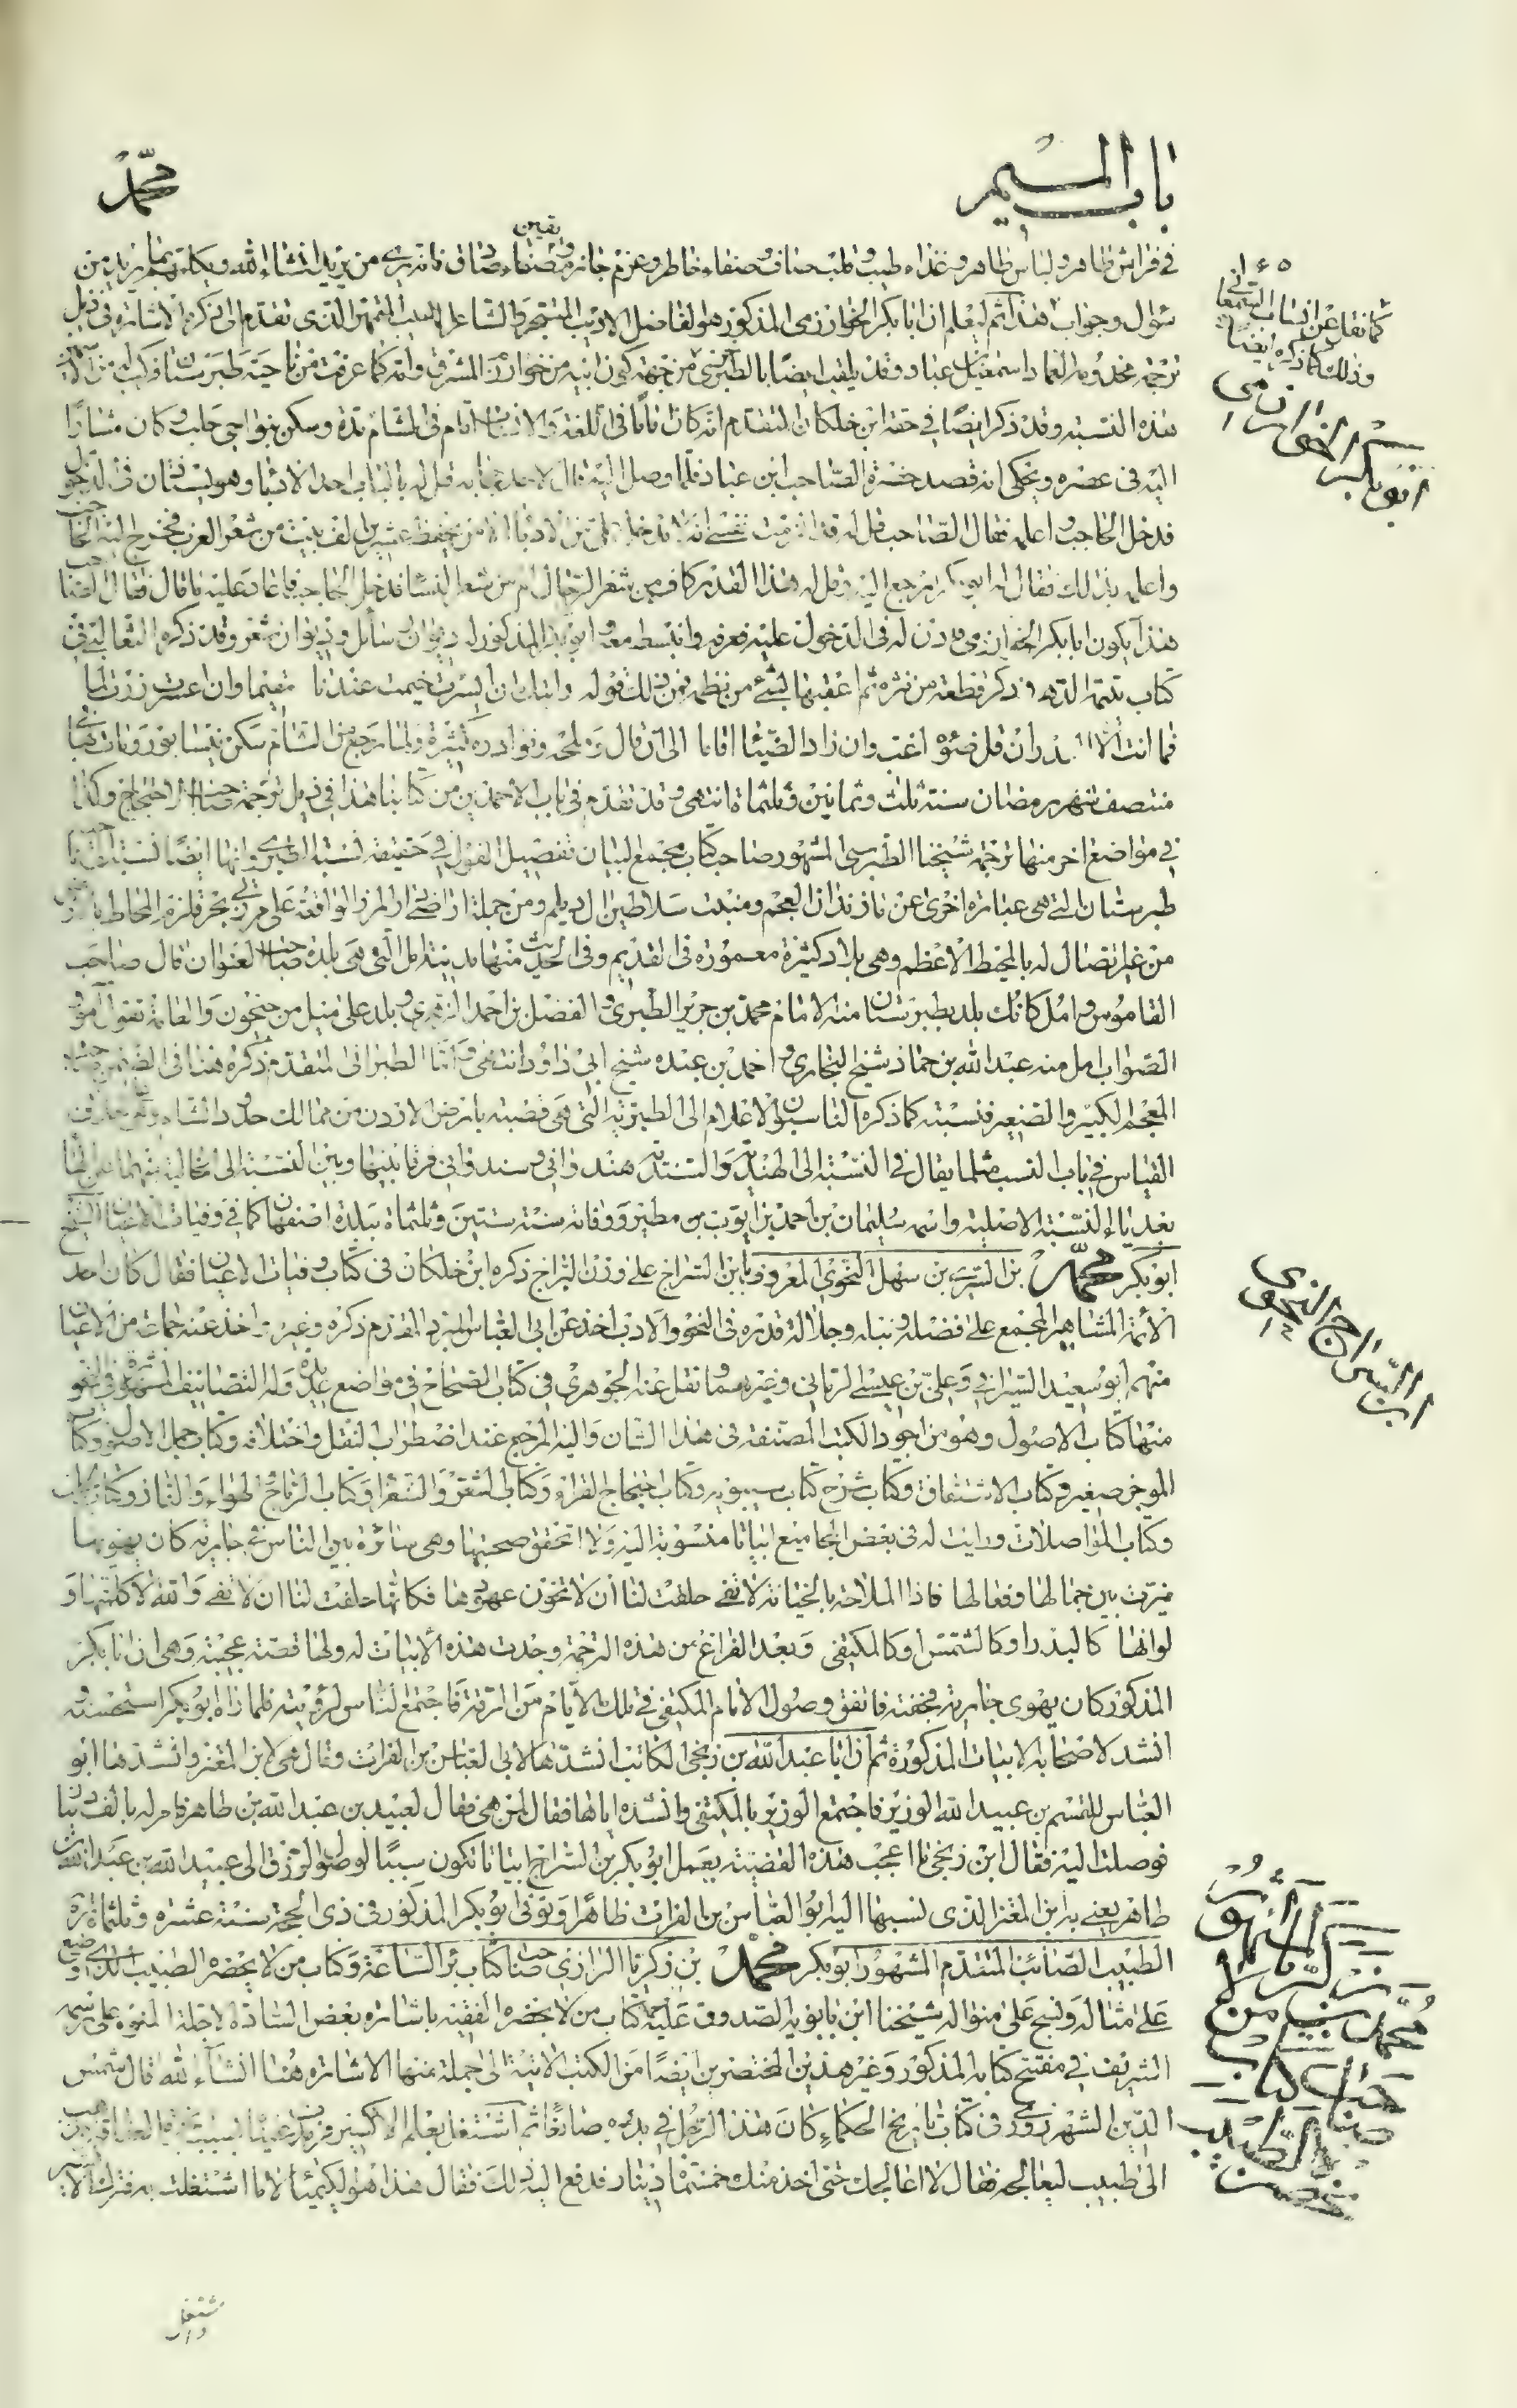 باب الميم
محمد
في فراش طاهر ولباس طاهر وغذاء طيب وقلب صاف وصفاء خاطر وعزم جازم وصفاء يقين صادق فانه يرى من يريد انشاء الله
سؤال وجواب هذا ثم ليعلم ان ابا بكر الخوارزمي المذكور هو الفاضل الاديب المتبحر والشاعر اللبيب المتمهر الذي تقدم الى ذكره الاشارة في ذيل
ترجمة مخدومه العماد اسمعيل بن عباد وقد يلقب ايضا بالطبرخزي من جهة كون ابيه من خوارزم المشرق وامه كما عرفت من ناحية طبرستان
هذه النسبة وقد ذكر ايضا في حقه ابن خلكان المتقدم انه كان اماما في اللغة والانساب اقام في الشام مدة وسكن بنواحي حلب وكان مشارا
اليه في عصره ويحكى انه قصد حضرة الصاحب ابن عباد فلما وصل اليه قال لاحد حجابه قل له بالباب احد الادباء وهو يستأذن في الدخول
فدخل الحاجب واعلمه فقال الصاحب قل له قد الزمت نفسي ان لا يدخل علي من الادباء الا من يحفظ عشرين الف بيت من شعر العرب فخرج اليه الحاجب
واعلمه بذلك فقال له ابو بكر ارجع اليه وقل له هذا القدر كاف من شعر الرجال ام من شعر النساء فدخل الحاجب فاعاد عليه ما قال فقال الصاحب
هذا يكون ابا بكر الخوارزمي فاذن له في الدخول عليه فعرفه وانبسط معه وابو بكر المذكور له ديوان رسائل وديوان شعر وقد ذكره الثعالبي في
كتاب يتيمة الدهر وذكر قطعة من نثره ثم اعقبها بشئ من نظمه فمن ذلك قوله رايتك ان ايسرت خيمت عندنا مقيما وان اعسرت زرت لماما
فما انت الا البدر ان قل ضوئه اغب وان زاد الضياء اقاما الى ان قال وملحه ونوادره كثيرة ولما رجع من الشام سكن نيسابور ومات بها
منتصف شهر رمضان سنة ثلث وثمانين وثلثمأة انتهى وقد تقدم في باب الاحمدين من كتابنا هذا في ذيل ترجمة صاحب الاحتجاج وكذا
في مواضع اخر منها ترجمة شيخنا الطبرسي المشهور صاحب كتاب مجمع البيان تفصيل القول في حقيقة نسبة الطبري وانها ايضا نسبة الى
طبرستان التي هي عبارة اخرى عن مازندران العجم ومنبت سلاطين الديلم ومن جملة اراضي دار المرز الواقعة على مرز بحر قلزم المحاط بالارض
من غير اتصال له بالمحيط الاعظم وهي بلاد كثيرة معمورة في القديم وفي الحديث منها مدينة امل التي هي بلدة صاحب العنوان قال صاحب
القاموس وامل كانك بلد بطبرستان منه الامام محمد بن جرير الطبري والفضل بن احمد الزهري وبلد على ميل من جيحون والعامة تقول آمو
الصواب امل منه عبد الله بن حماد شيخ البخاري واحمد بن عبده شيخ ابي داود انتهى واما الطبراني المتقدم ذكره هنا في الضمن صاحب
المعجم الكبير والصغير فنسبته كما ذكره الناسبون الاعلام الى الطبرية التي هي قصبة بارض الاردن من ممالك حدود الشام وهي على خلاف
القياس في باب النسب مثلما يقال في النسبة الى الهند والسند هندواني وسندواني فرقا بينها وبين النسبة الى
بعد ياء النسبة الاصلية واسمه سليمان بن احمد بن ايوب بن مطير ووفاته سنة ستين وثلثمأة ببلدة اصفهان كما في وفيات الاعيان الشيخ
ابو بكر محمد بن السري بن سهل النحوي المعروف بابن السراج على وزن البراج ذكره ابن خلكان في كتاب وفيات الاعيان فقال كان احد
الأئمة المشاهير المجمع على فضله ونبله وجلالة قدره في النحو والادب اخذ عن ابي العباس المبرد المقدم ذكره وغيره واخذ عنه جماعة من الاعيان
منهم ابو سعيد السيرافي وعلي بن عيسى الرماني وغيرهما ونقل عنه الجوهري في كتاب الصحاح في مواضع عديدة وله التصانيف المشهورة في النحو
منها كتاب الاصول وهو من اجود الكتب المصنفة في هذا الشان واليه المرجع عند اضطراب النقل واختلافه وكتاب جمل الاصول وكتاب
الموجز صغير وكتاب الاشتقاق وكتاب شرح كتاب سيبويه وكتاب احتجاج القراء وكتاب الشعر والشعراء وكتاب الرياح والهواء والنار وكتاب
وكتاب المواصلات ورايت له في بعض المجاميع ابياتا منسوبة اليه ولا اتحقق صحتها وهي سائرة بين الناس في جارية كان يهويها
ميزت بين جمالها وفعالها فاذا الملاحة بالخيانة لا تفي حلفت لنا ان لا تخون عهودها فكانها حلفت لنا ان لا تفي والله لا كلمتها و
لو انها كالبدر او كالشمس او كالمكتفي وبعد الفراغ من هذه الترجمة وجدت هذه الابيات له ولها قصة عجيبة وهي ان ابا بكر
المذكور كان يهوى جارية فجفته فاتفق وصول الامام المكتفي في تلك الايام من الرقة فاجتمع الناس لرؤيته فلما راه ابو بكر استحسنه و
انشد لاصحابه الابيات المذكورة ثم ان ابا عبد الله بن زنجي الكاتب انشدها لابي العباس بن الفرات وقال هي لابن المعتز وانشدها ابو
العباس للقسم بن عبيد الله الوزير فاجتمع الوزير بالمكتفي وانشده اياها فقال لمن هي فقال لعبيد بن عبد الله بن طاهر فامر له بالف دينار
فوصلت اليه فقال ابن زنجي ما اعجب هذه القضية يعمل ابو بكر بن السراج ابياتا تكون سببا لوصول الرزق الى عبيد الله بن عبد الله بن
طاهر يعني به ابن المعتز الذي نسبها اليه ابو العباس بن الفرات ظاهرا وتوفي ابو بكر المذكور في ذي الحجة سنة ستة عشرة وثلثمأة
الطبيب الصائب المتقدم المشهور ابو بكر محمد بن زكريا الرازي صاحب كتاب برء الساعة وكتاب من لا يحضره الطبيب الذي وضع
على مثاله ونسج على منواله شيخنا ابن بابويه الصدوق كتاب من لا يحضره الفقيه باشارة بعض السادة الاجلة المنوه على اسمه
الشريف في مفتتح كتابه المذكور وغير هذين المختصرين ايضا من الكتب الاتية الى جملة منها الاشارة هنا انشاء الله قال شمس
الدين الشهرزوري في كتاب تاريخ الحكماء كان هذا الرجل في بدء امره صائغا ثم اشتغل بعلم الاكسير
الى طبيب ليعالجه فقال لا اعالجك حتى اخذ منك خمسمأة دينار فدفع اليه ذلك فقال هذا هو الكيمياء لا ما اشتغلت به
كما نقل عن انساب السمعاني
وذلك كما ذكره ايضا
ابو بكر الخوارزمي
ابن السراج النحوي
محمد بن زكريا الرازي